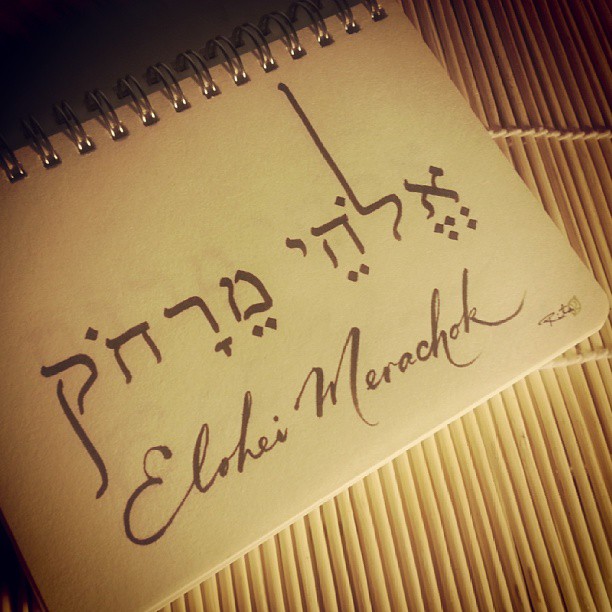 אֱלֹהֵי מֶרָחֹק
Elohei Merachok